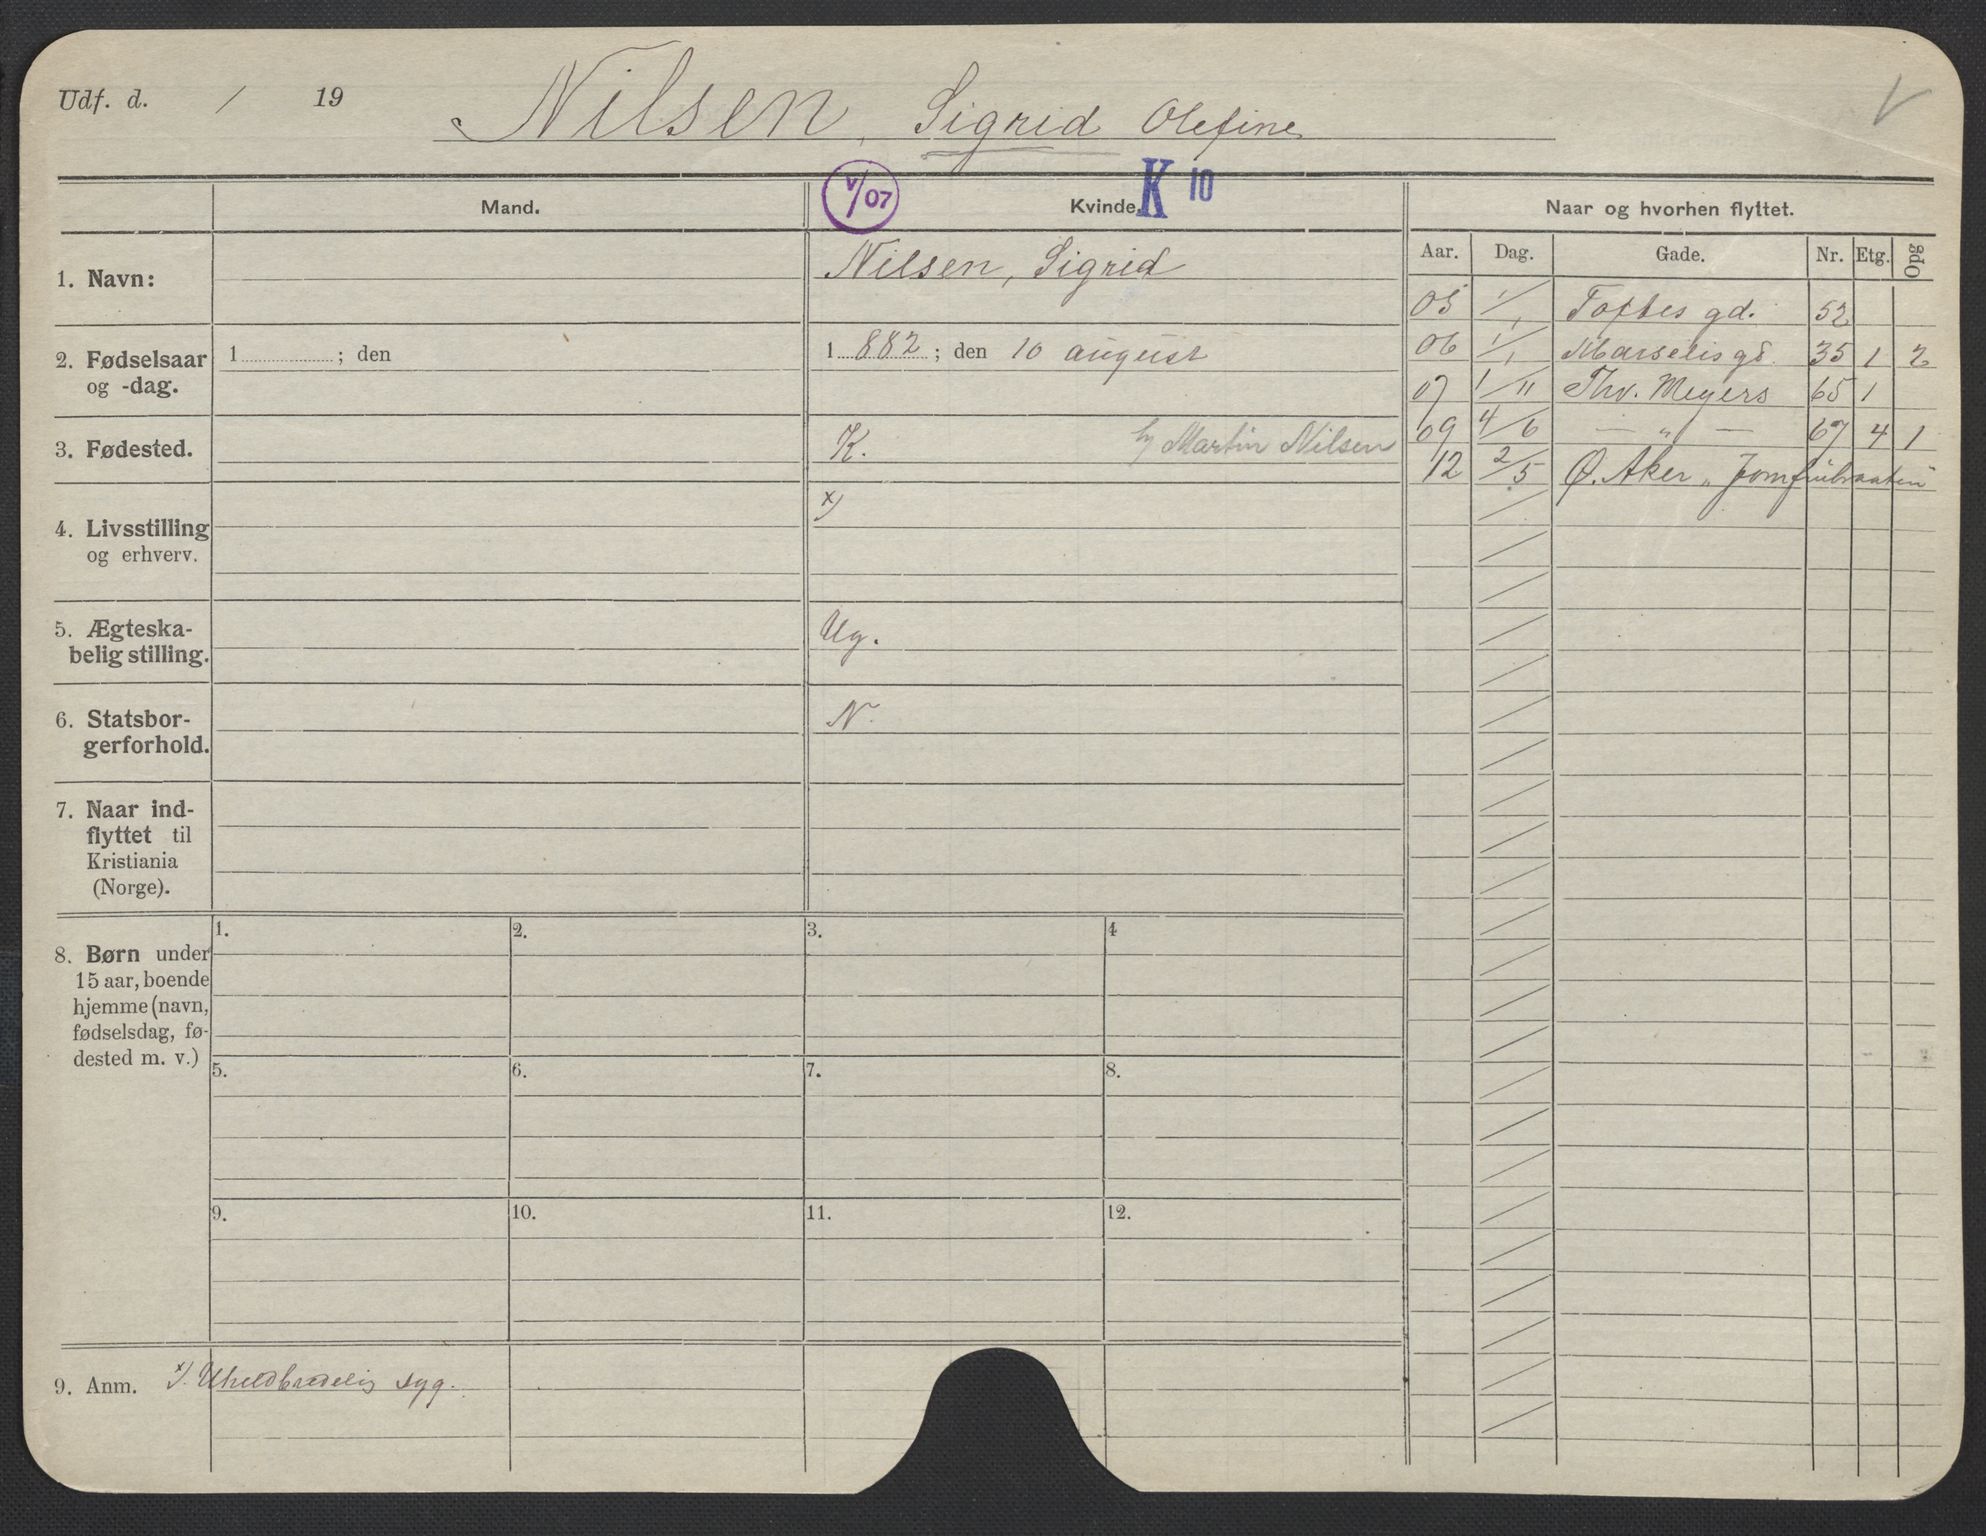 Udf. d. / 19
Nilsen, Sigrid Olefine
V
V/07
K 10
Mand.
Kvinde.
Naar og hvorhen flyttet.
Aar. Dag. Gade. Nr. Etg. Opg
1. Navn:
Nilsen, Sigrid
2. Fødselsaar
og -dag.
1 ; den
1 882 ; den 10 august
3. Fødested.
K.
Martin Nilsen
4. Livsstilling
og erhverv.
x)
5. Ægteska-
belig stilling.
Ug.
6. Statsbor-
gerforhold.
N.
7. Naar ind-
flyttet til
Kristiania
(Norge).
8. Børn under
15 aar, boende
hjemme (navn,
fødselsdag, fø-
dested m. v.)
1. 2. 3. 4
5. 6. 7. 8.
9. 10. 11. 12.
9. Anm. x). Uhelbredelig syg.
05 1/1 Toftes gd. 52
06 1/1 Marselis gd. 35 1 2
07 1/11 Thv. Meyers 65 1
09 4/6 — " — 67 4 1
12 2/5 Ø. Aker „Jomfrubraaten"